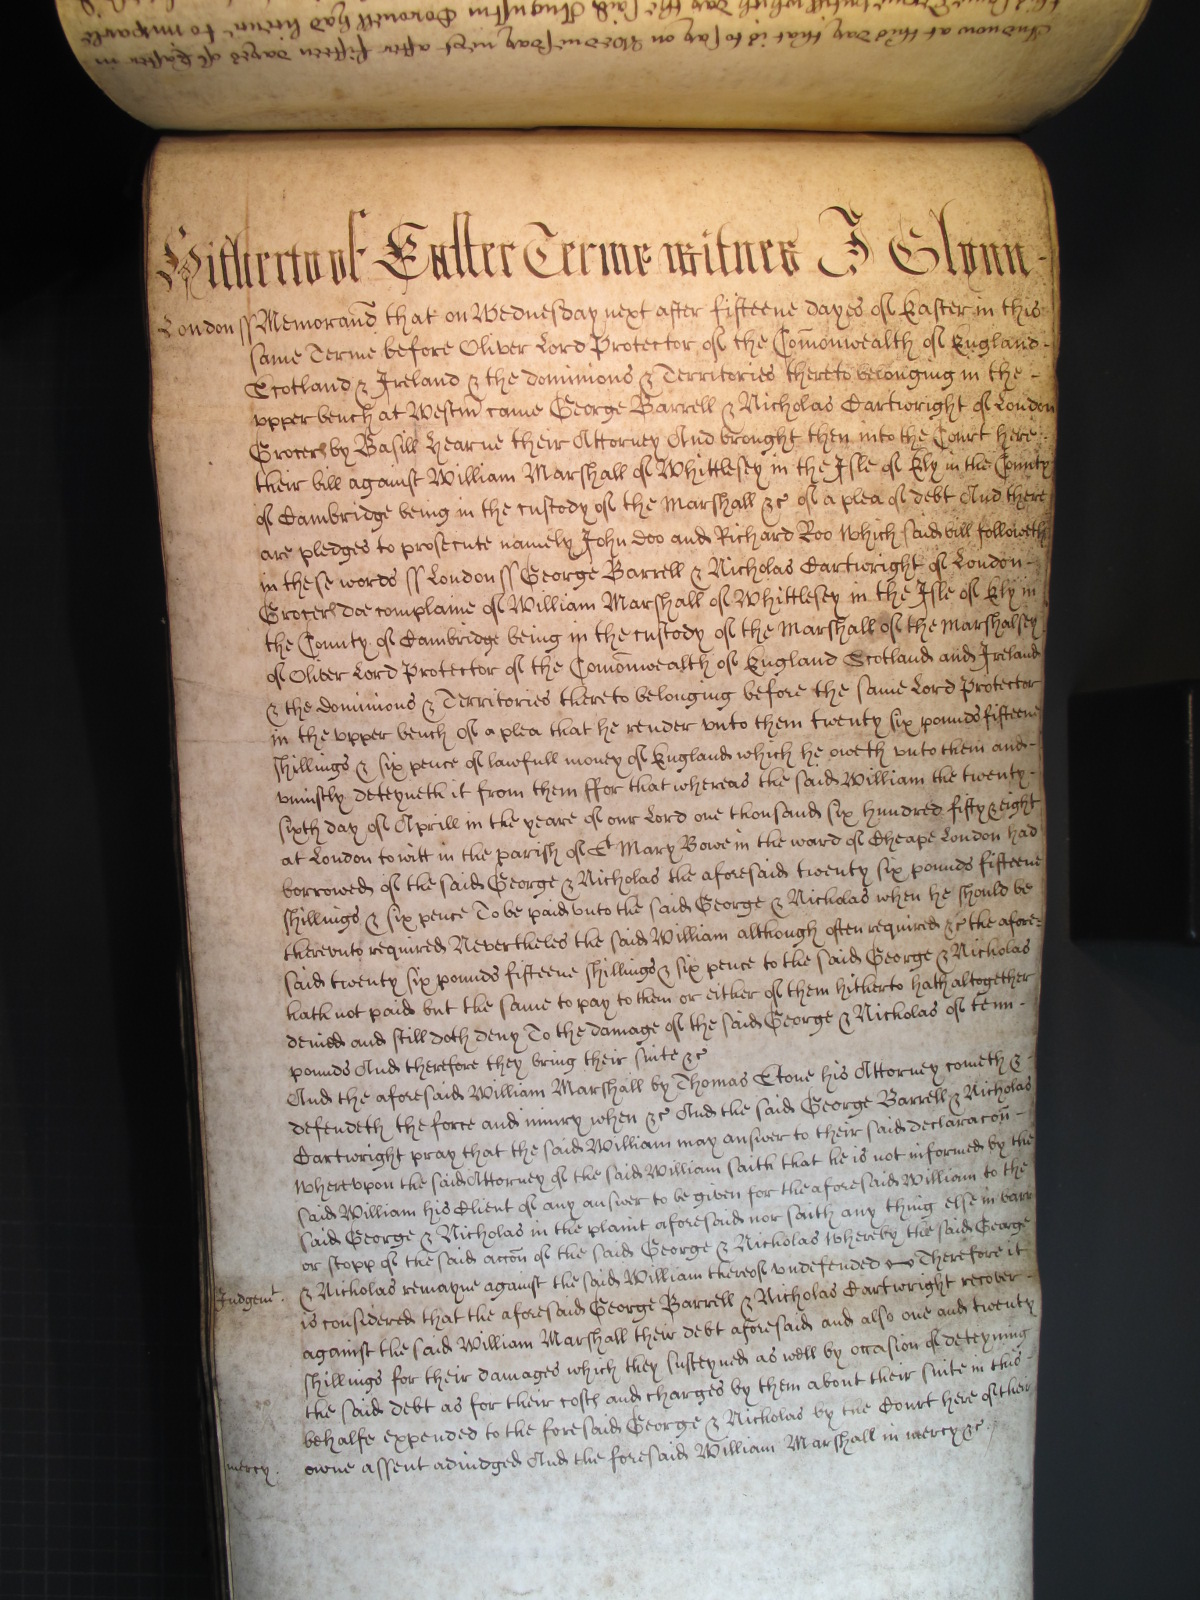 And now at this day that is to say on Wednesday next after fifteen dayes of Easter in
Hitherto of Easter Terme witnes J Glynn
London ss Memorand that on Wednesday next after fifteene dayes of Easter in this
same Terme before Oliver Lord Protector of the Comonwealth of England
Scotland & Ireland & the dominions & Territories thereto belonging in the
upper bench at Westm came George Barrell & Nicholas Cartwright of London
Grocers by Basill Hearne their Attorney And brought then into the Court here
their bill against William Marshall of Whittlesey in the Isle of Ely in the County
of Cambridge being in the custody of the Marshall &c of a plea of debt And there
are pledges to prosecute namely John Doo and Richard Roo Which said bill followeth
in these words ss London ss George Barrell & Nicholas Cartwright of London
Grocers doe complaine of William Marshall of Whittlesey in the Isle of Ely in
the County of Cambridge being in the custody of the Marshall of the Marshalsey
of Oliver Lord Protector of the Comonwealth of England Scotland and Ireland
& the dominions & Territories thereto belonging before the same Lord Protector
in the upper bench of a plea that he render unto them twenty six pounds fifteene
shillings & six pence of lawfull money of England which he oweth unto them and
uniustly deteyneth it from them ffor that whereas the said William the twenty
sixth day of Aprill in the yeare of our Lord one thousand six hundred fifty & eight
at London to witt in the parish of St Mary Bowe in the ward of Cheape London had
borrowed of the said George & Nicholas the aforesaid twenty six pounds fifteene
shillings & six pence To be paid unto the said George & Nicholas when he should be
thereunto required Nevertheles the said William although often required &c the afore=
said twenty six pounds fifteene shillings & six pence to the said George & Nicholas
hath not paid but the same to pay to them or either of them hitherto hath altogether
denied and still doth deny To the damage of the said George & Nicholas of tenn
pounds And therefore they bring their suite &c
And the aforesaid William Marshall by Thomas Stone his Attorney cometh &
defendeth the force and iniury when &c And the said George Barrell & Nicholas
Cartwright pray that the said William may answer to their said declaracon
Whereupon the said Attorney of the said William saith that he is not informed by the
said William his Client of any answer to be given for the aforesaid William to the
said George & Nicholas in the plaint aforesaid nor saith any thing else in barr
or stopp of the said accon of the said George & Nicholas whereby the said George
Iudgemt. & Nicholas remayne against the said William thereof undefended Therefore it
is considered that the aforesaid George Barrell & Nicholas Cartwright recover
against the said William Marshall their debt aforesaid and also one and twenty
shillings for their damages which they susteyned as well by occasion of deteyning
the said debt as for their costs and charges by them about their suite in this
behalfe expended to the foresaid George & Nicholas by the Court here of their
mercy. owne assent adiudged And the foresaid William Marshall in mercy &c.